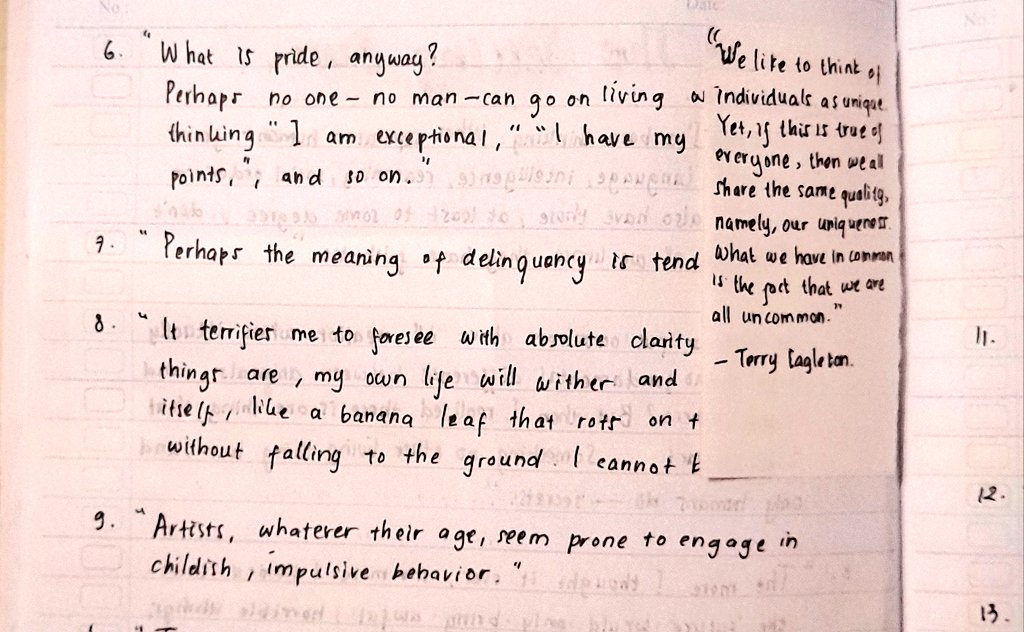 No.:
Date
No.:
6. "What is pride, anyway?
Perhaps no one – no man – can go on living
thinking "I am exceptional," "I have my
points,", and so on."
7. "Perhaps the meaning of delinquency is tend
8. "It terrifies me to foresee with absolute clarity
things are, my own life will wither and
itself, like a banana leaf that rots on t
without falling to the ground. I cannot t
9. "Artists, whatever their age, seem prone to engage in
childish, impulsive behavior."
"We like to think of
individuals as unique.
Yet, if this is true of
everyone, then we all
share the same quality,
namely, our uniqueness.
What we have in common
is the fact that we are
all uncommon."
– Terry Eagleton.
11.
12.
13.